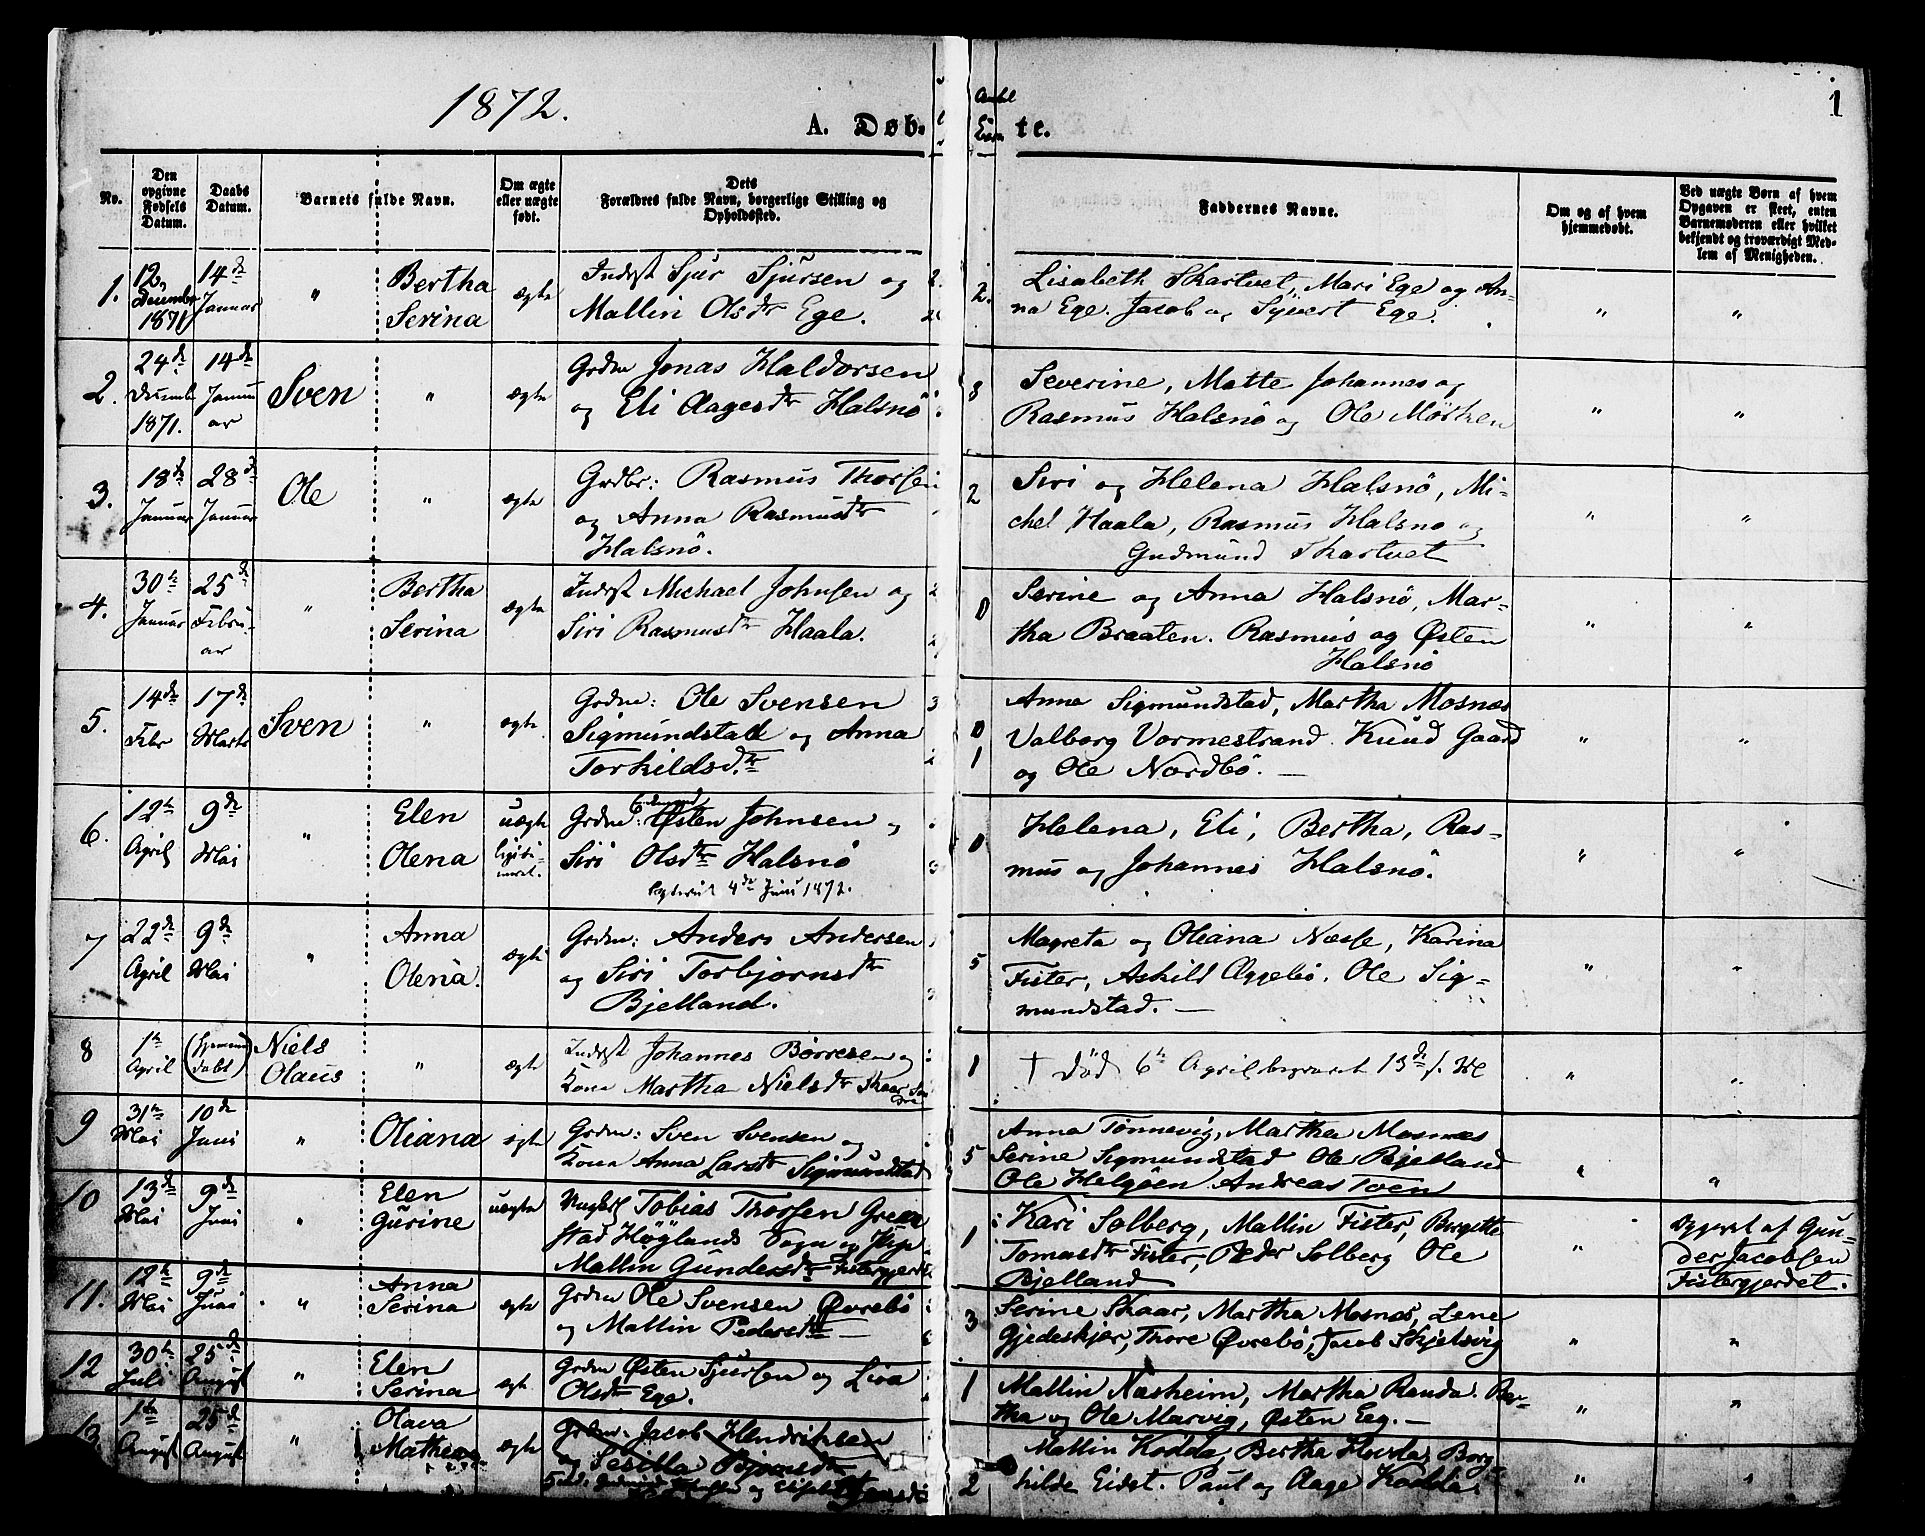 1872.
1
A. Døb-
te.
Antal
No.
Den opgivne Fødsels Datum.
Daabs Datum.
Barnets fulde Navn.
Om ægte eller uægte født.
Dets Forældres fulde Navn, borgerlige Stilling og Opholdssted.
Faddernes Navne.
Om og af hvem hjemmedøbt.
Ved uægte Børn af hvem Opgaven er skeet, enten Barnemoderen eller hvilket bekjendt og troværdigt Medlem af Menigheden.
1. 12 December 1871 14de Januar " Bertha Serina ægte
Inderst Sjur Sjursen og
Mallin Olsdtr Ege.
2.
Lisabeth Skartvet, Mari Ege og An-
na Ege. Jacob og Syvert Ege.
" "
2. 24de Decemb 1871. 14de Januar Sven " ægte
Grdm Jonas Haldorsen
og Eli Aagesdtr Halsnö
8
Severine, Mætte Johannes og
Rasmus Halsnö og Ole Mörken
" "
3. 18de Januar 28de Januar Ole " ægte
Grdbr: Rasmus Thorsen
og Anna Rasmusdtr
Halsnö.
2
Siri og Helena Halsnö, Mi-
chel Haala, Rasmus Halsnö og
Gudmund Skartvet
" "
4. 30te Januar 25de Februar " Bertha Serina ægte
Inderst Michael Johnsen og
Siri Rasmusdtr Haala.
0
Serine og Anna Halsnö, Mar-
tha Braaten. Rasmus og Østen
Halsnö
" "
5. 14de Febr 17de Marts Sven " ægte
Grdm: Ole Svensen
Sigmundstad og Anna
Torkildsdtr
0
1
Anna Sigmundstad, Martha Mosnæs
Valborg Vormestrand. Knud Gaard
og Ole Nordbö. —
" "
6. 12te April 9de Mai " Elen Olena uægte legitimeret.
Grdm: Østen Johnsen og
Siri Olsdtr Halsnö
Copuleret 4de Juni 1872.
0
Helena, Eli, Bertha, Ras-
mus og Johannes Halsnö.
" "
7 22de April 9de Mai " Anna Olena. ægte
Grdm: Anders Andersen
og Siri Torbjørnsdtr
Bjelland.
5
Magreta og Oleana Næsse, Karina
Fister, Askild Aggebö. Ole Sig-
mundstad. —
" "
8 1te April (Hjemmedøbt) Niels Olaus " ægte
Inderst Johannes Børresen og
Kone Martha Nielsdtr Skaar
1
† Död 6te April begravet 13de
" "
9 31te Mai 10de Juni " Oliana ægte
Grdm: Sven Svensen og
Kone Anna Larsdtr Sigmundstad
5
Anna Tönnevig, Martha Mosnæs
Serine Sigmundstad Ole Bjelland
Ole Helgöen Andreas Toen
" "
10 13de Mai 9de Juni " Elen Gurine uægte
Ungkarl Tobias Thorsen
stad Höylands Sogn og Pige
Mallin Gundersdtr Fistergjerdet
1
Kari Solberg, Mallin Fister, Bergitte
Tomasdtr Fister, Peder Solberg Ole
Bjelland
"
Opgivet af Gun-
der Jacobsen
Fistergjerdet.
11. 12te Mai 9de Juni " Anna Serina ægte
Grdm Ole Svensen Øvrebö
og Mallin Pedersdtr —
3
Serine Skaar, Martha Mosnæs, Lene
Gjedeskjær, Thore Øvrebö, Jacob Skjelsvig
" "
12 30te Juli 25de August " Elen Serina ægt
Grdm Østen Sjursen og Liva
Olsdtr Ege.
1
Mallin Næsheim, Martha Randa. Ber-
tha og Ole Marvig, Østen Eeg. —
" "
13 1te August 25de August " Olava Mathea ægte
Grdm: Jacob Hendriksen
og Sesilla Bjørnsdtr
2
Mallin Kodda, Bertha Hovda, Borg-
hilde Eidst. Paul og Aage Kodda.
" "